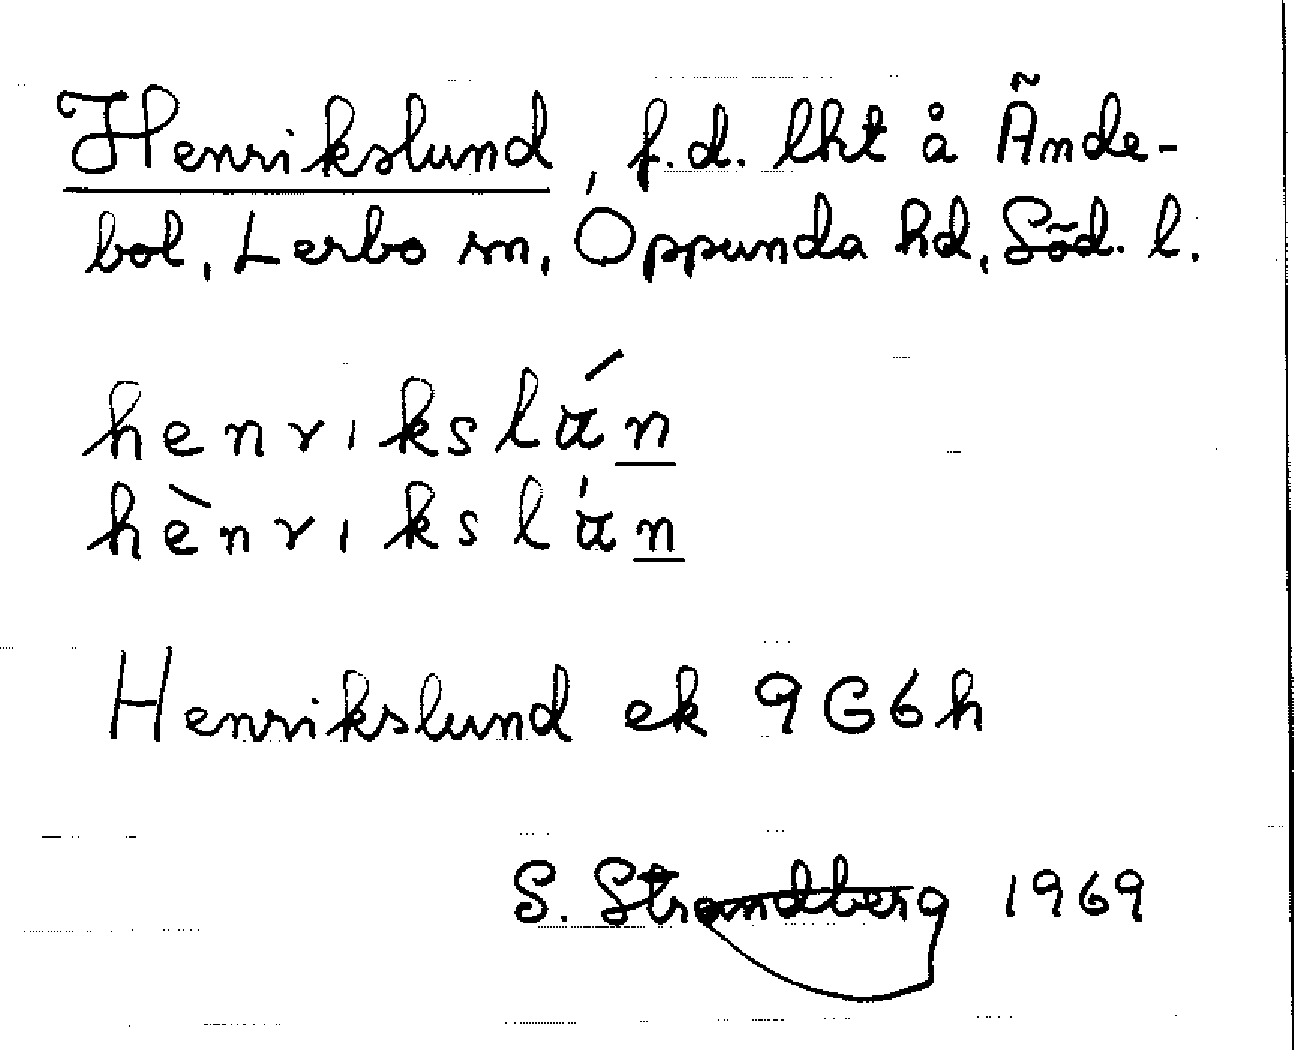 Henrikslund, f.d. lht å Ände-
bol, Lerbo sn, Oppunda hd, Söd. l.
henrıkslán
hènrıkslán
Henrikslund ek 9G6h
S. Strandberg 1969